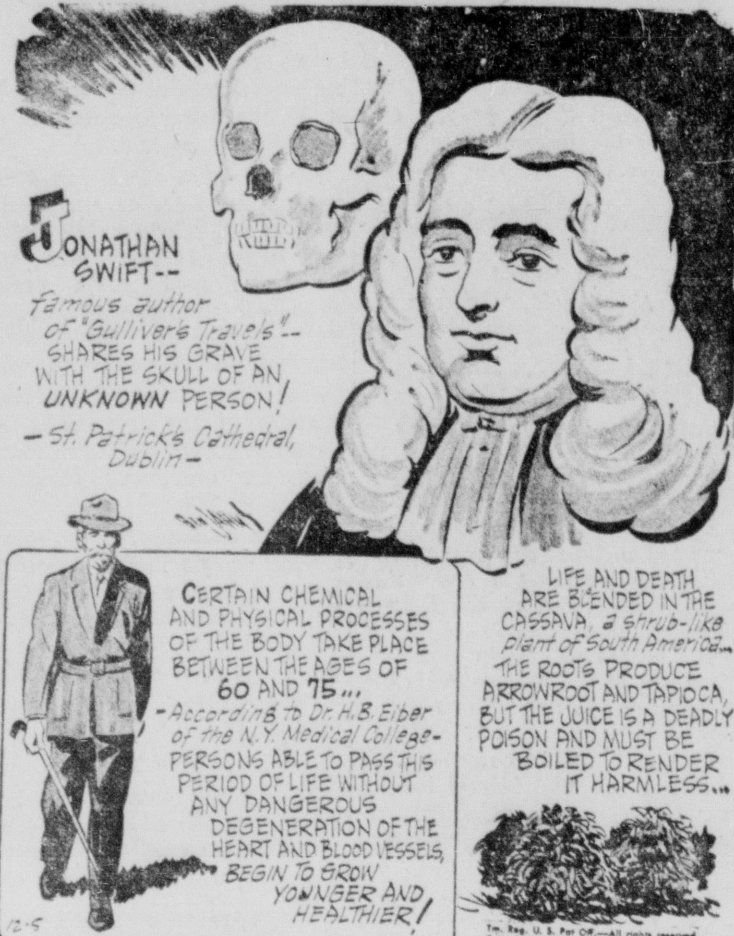 JONATHAN
SWIFT--
Famous author
of "Gulliver's Travels"--
SHARES HIS GRAVE
WITH THE SKULL OF AN
UNKNOWN PERSON!
- St. Patrick's Cathedral,
Dublin -
CERTAIN CHEMICAL
AND PHYSICAL PROCESSES
OF THE BODY TAKE PLACE
BETWEEN THE AGES OF
60 AND 75...
- According to Dr. H.B. Eiber
of the N.Y. Medical College-
PERSONS ABLE TO PASS THIS
PERIOD OF LIFE WITHOUT
ANY DANGEROUS
DEGENERATION OF THE
HEART AND BLOOD VESSELS,
BEGIN TO GROW
YOUNGER AND
HEALTHIER!
12-5
LIFE AND DEATH
ARE BLENDED IN THE
CASSAVA, a shrub-like
plant of South America...
THE ROOTS PRODUCE
ARROWROOT AND TAPIOCA,
BUT THE JUICE IS A DEADLY
POISON AND MUST BE
BOILED TO RENDER
IT HARMLESS...
Tm. Reg. U. S. Pat Off.—All rights reserved